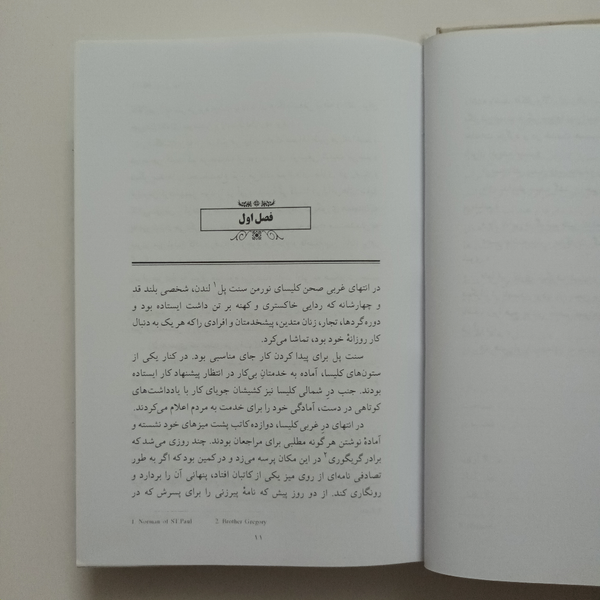 فصل اول
در انتهای غربی صحن کلیسای نورمن سنت پل۱ لندن، شخصی بلند قد
و چهارشانه که ردایی خاکستری و کهنه بر تن داشت ایستاده بود و
دوره‌گردها، تجار، زنان متدین، پیشخدمتان و افرادی را که هر یک به دنبال
کار روزانهٔ خود بود، تماشا می‌کرد.
سنت پل برای پیدا کردن کار جای مناسبی بود. در کنار یکی از
ستون‌های کلیسا، آماده به خدمتان بی‌کار در انتظار پیشنهاد کار ایستاده
بودند. جنب در شمالی کلیسا نیز کشیشان جویای کار با یادداشت‌های
کوتاهی در دست، آمادگی خود را برای خدمت به مردم اعلام می‌کردند.
در انتهای در غربی کلیسا، دوازده کاتب پشت میزهای خود نشسته و
آمادهٔ نوشتن هر گونه مطلبی برای مراجعان بودند. چند روزی می‌شد که
برادر گریگوری۲ در این مکان پرسه می‌زد و در کمین بود که اگر به طور
تصادفی نامه‌ای از روی میز یکی از کاتبان افتاد، پنهانی آن را بردارد و
رونگاری کند. از دو روز پیش که نامهٔ پیرزنی را برای پسرش که در
1. Norman of ST.Paul 2. Brother Gregory
۱۱